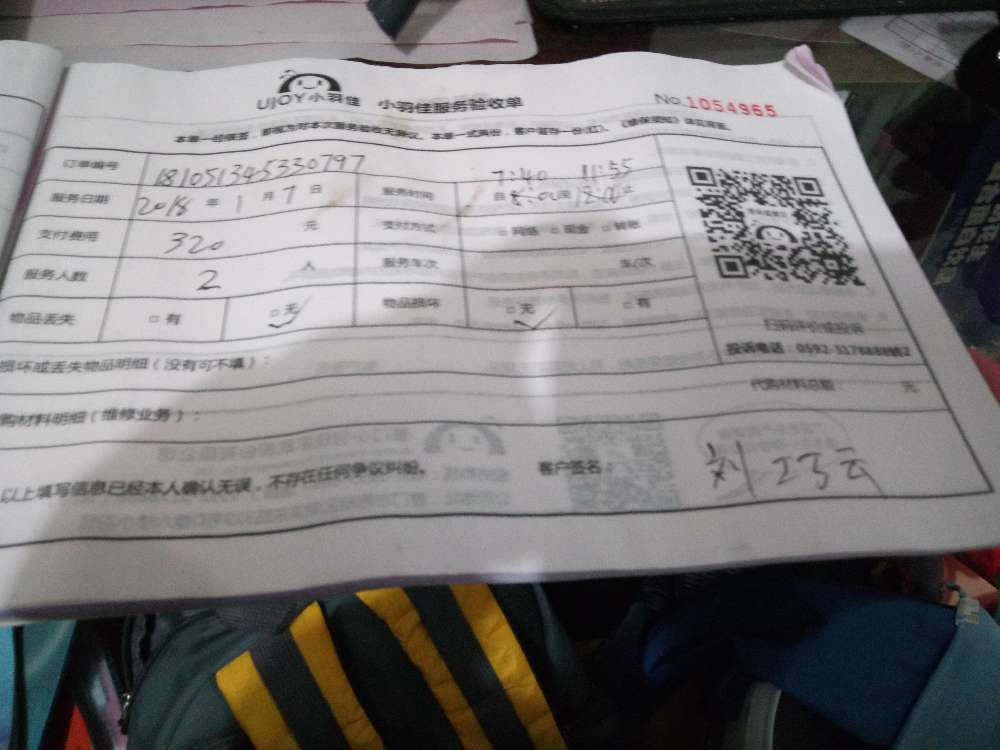 UJOY小羽佳 小羽佳服务验收单 No.1054965
本单一经签签，即视为对本次服务验收无异议。本单一式两份，客户留存一份(红)。《维保须知》详见背面。
订单编号 181051345330797
服务日期 2018 年 1 月 7 日 服务时间 7:40 11:55 自 8:00 至 12:00 止
支付费用 320 元 支付方式 □网络 □现金 □转账
服务人数 2 人 服务车次 车/次
物品丢失 □有 □无 ✓ 物品损坏 □无 ✓ □有
扫码评价或投诉
投诉电话：0592-
损坏或丢失物品明细（没有可不填）：
购材料明细（维修业务）： 代购材料总额： 元
以上填写信息已经本人确认无误，不存在任何争议纠纷。 客户签名： 刘巧云